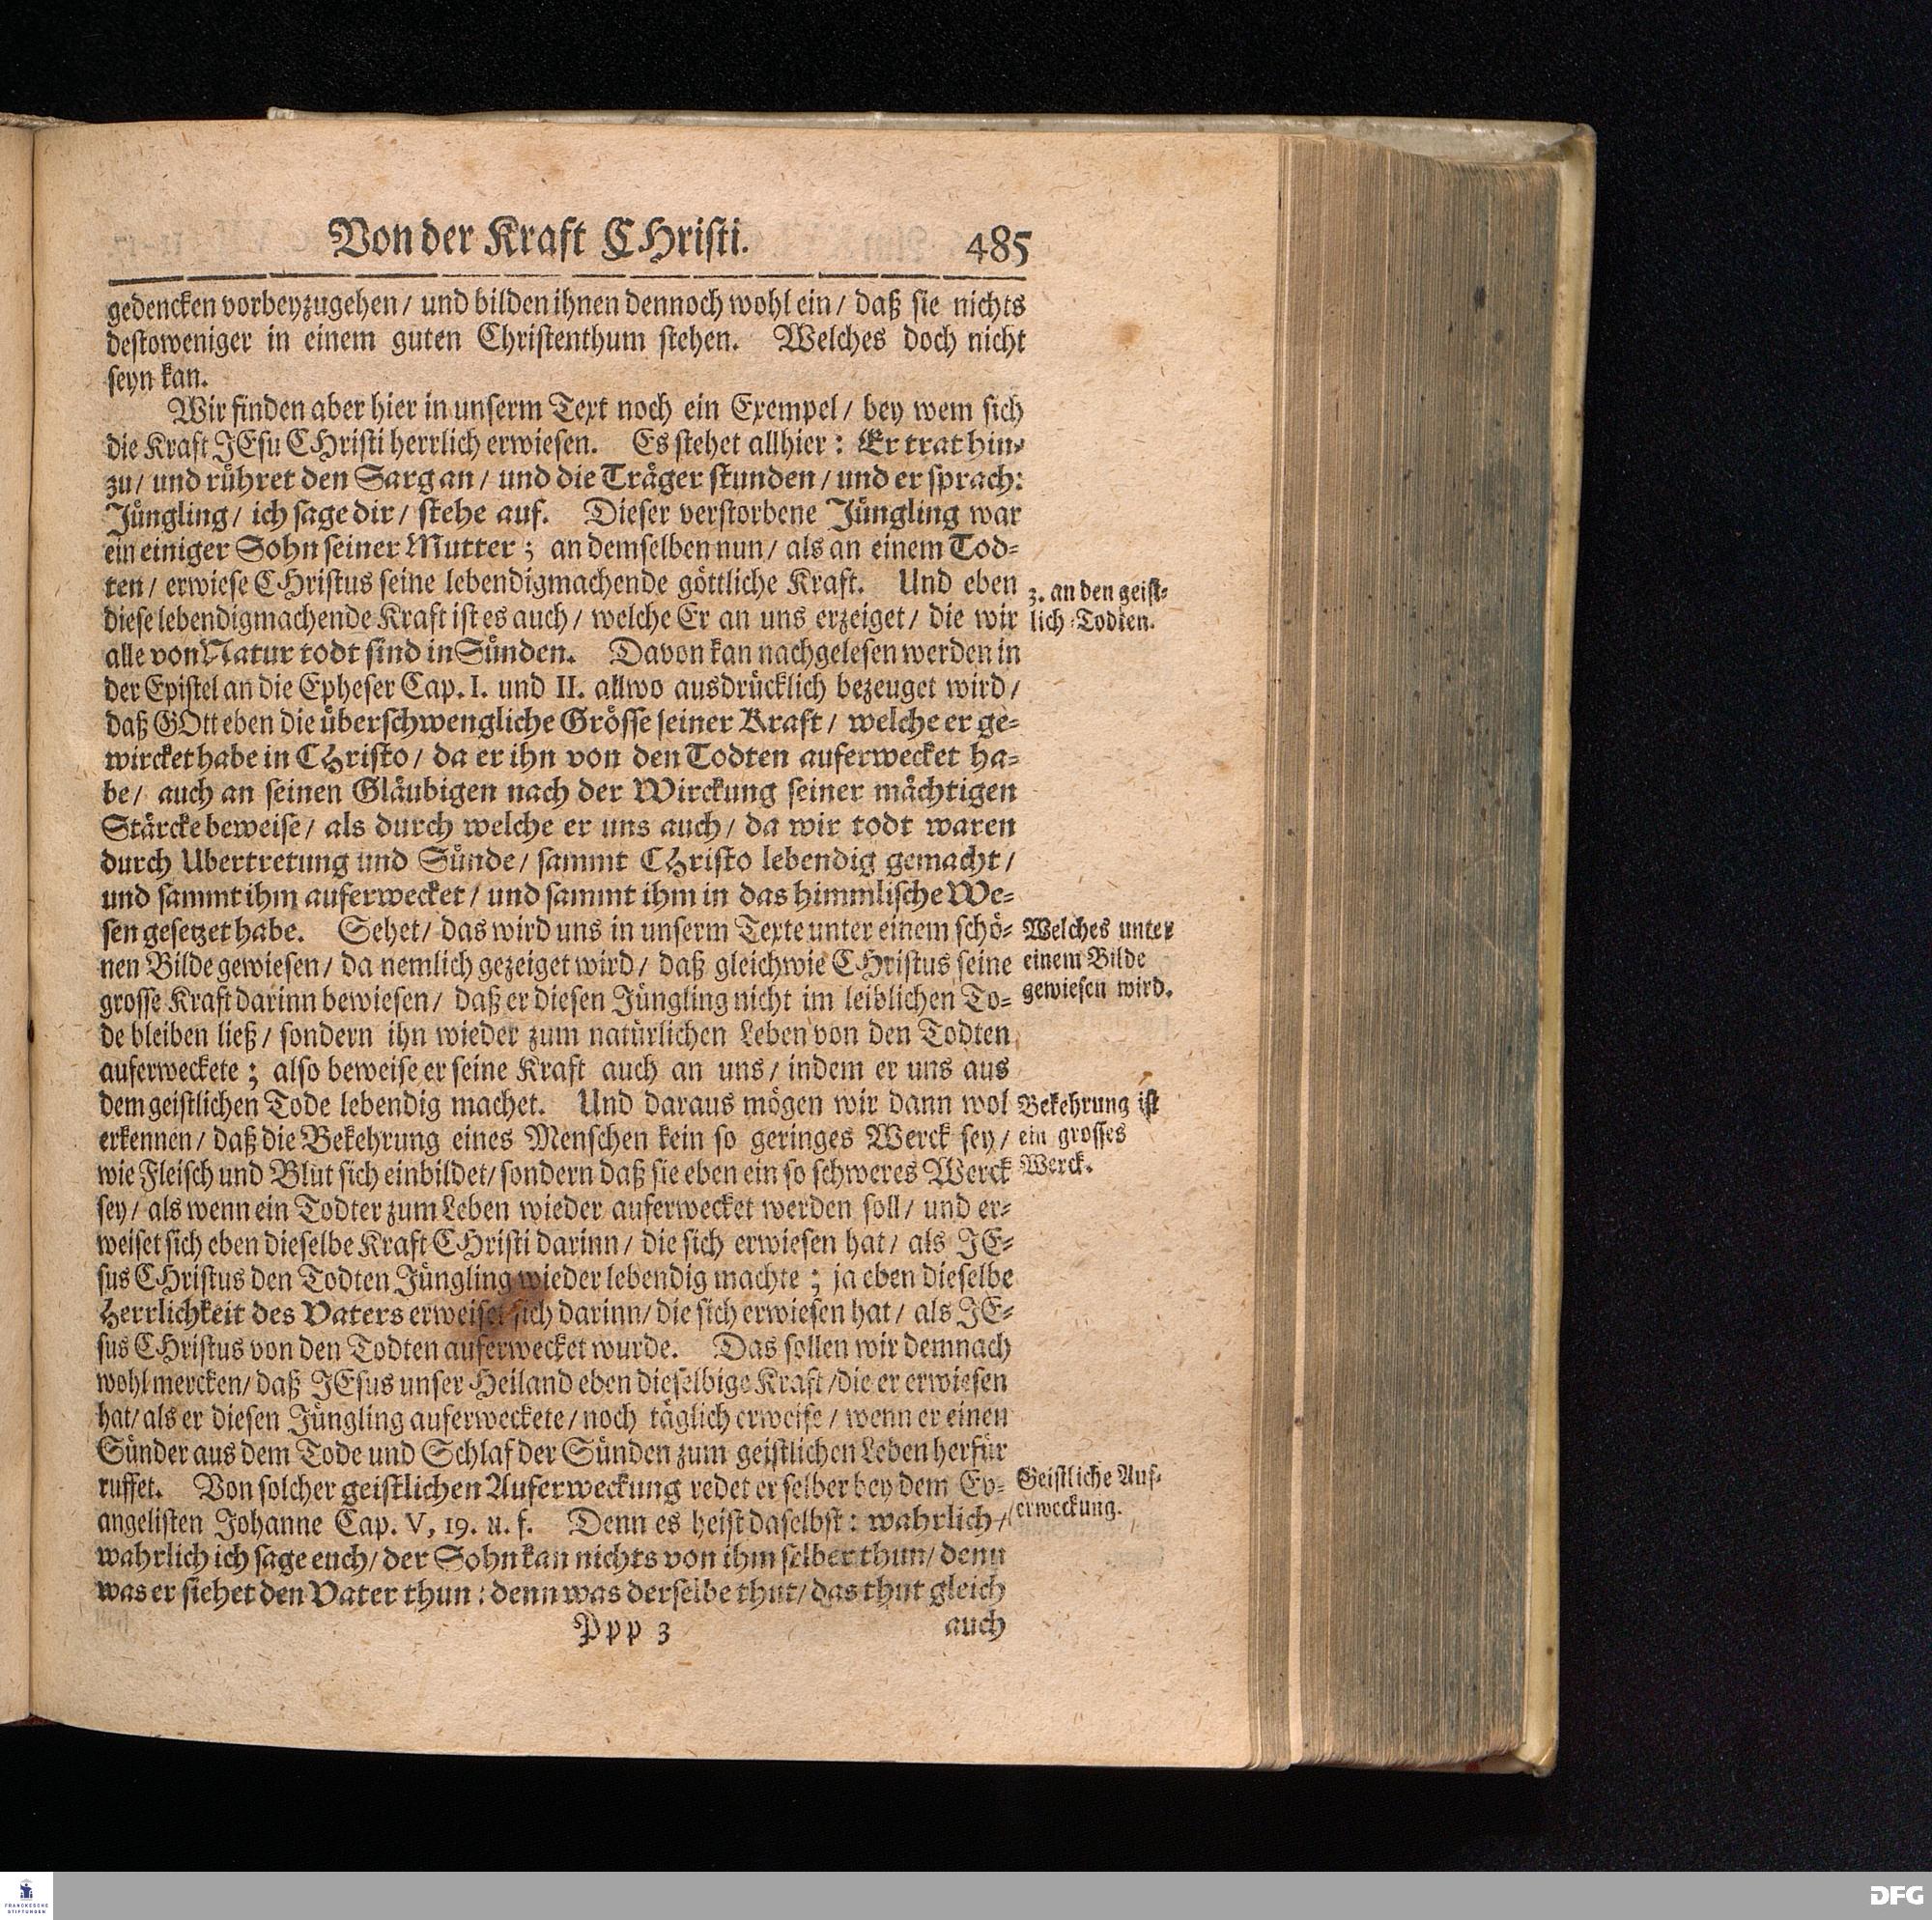 Von der Kraft CHristi.
485
gedencken vorbeyzugehen/ und bilden ihnen dennoch wohl ein/ daß sie nichts
destoweniger in einem guten Christenthum stehen. Welches doch nicht
seyn kan.
Wir finden aber hier in unserm Text noch ein Exempel/ bey wem sich
die Kraft JEsu CHristi herrlich erwiesen. Es stehet allhier: Er trat hin-
zu/ und rühret den Sarg an/ und die Träger stunden/ und er sprach:
Jüngling/ ich sage dir/ stehe auf. Dieser verstorbene Jüngling war
ein einiger Sohn seiner Mutter; an demselben nun/ als an einem Tod-
ten/ erwiese CHristus seine lebendigmachende göttliche Kraft. Und eben
diese lebendigmachende Kraft ist es auch/ welche Er an uns erzeiget/ die wir
alle von Natur todt sind in Sünden. Davon kan nachgelesen werden in
der Epistel an die Epheser Cap. I. und II. allwo ausdrücklich bezeuget wird/
daß GOtt eben die überschwengliche Grösse seiner Kraft/ welche er ge-
wircket habe in CHristo/ da er ihn von den Todten auferwecket ha-
be/ auch an seinen Gläubigen nach der Wirckung seiner mächtigen
Stärcke beweise/ als durch welche er uns auch/ da wir todt waren
durch Ubertretung und Sünde/ sammt CHristo lebendig gemacht/
und sammt ihm auferwecket/ und sammt ihm in das himmlische We-
sen gesetzet habe. Sehet/ das wird uns in unserm Texte unter einem schö-
nen Bilde gewiesen/ da nemlich gezeiget wird/ daß gleichwie CHristus seine
grosse Kraft darinn bewiesen/ daß er diesen Jüngling nicht im leiblichen To-
de bleiben ließ/ sondern ihn wieder zum natürlichen Leben von den Todten
auferweckete; also beweise er seine Kraft auch an uns/ indem er uns aus
dem geistlichen Tode lebendig machet. Und daraus mögen wir dann wol
erkennen/ daß die Bekehrung eines Menschen kein so geringes Werck sey/
wie Fleisch und Blut sich einbildet/ sondern daß sie eben ein so schweres Werck
sey/ als wenn ein Todter zum Leben wieder auferwecket werden soll/ und er-
weiset sich eben dieselbe Kraft CHristi darinn/ die sich erwiesen hat/ als JE-
sus CHristus den Todten Jüngling wieder lebendig machte; ja eben dieselbe
Herrlichkeit des Vaters erweiset sich darinn/ die sich erwiesen hat/ als JE-
sus CHristus von den Todten auferwecket wurde. Das sollen wir demnach
wohl mercken/ daß JEsus unser Heiland eben dieselbige Kraft/ die er erwiesen
hat/ als er diesen Jüngling auferweckete/ noch täglich erweise/ wenn er einen
Sünder aus dem Tode und Schlaf der Sünden zum geistlichen Leben herfür
ruffet. Von solcher geistlichen Auferweckung redet er selber bey dem Ev-
angelisten Johanne Cap. V, 19. u. f. Denn es heist daselbst: wahrlich/
wahrlich ich sage euch/ der Sohn kan nichts von ihm selber thun/ denn
was er siehet den Vater thun: denn was derselbe thut/ das thut gleich
Ppp 3
auch
3. an den geist-
lich-Todten.
Welches unter
einem Bilde
gewiesen wird.
Bekehrung ist
ein grosses
Werck.
Geistliche Auf-
erweckung.
FRANCKESCHE
STIFTUNGEN
DFG